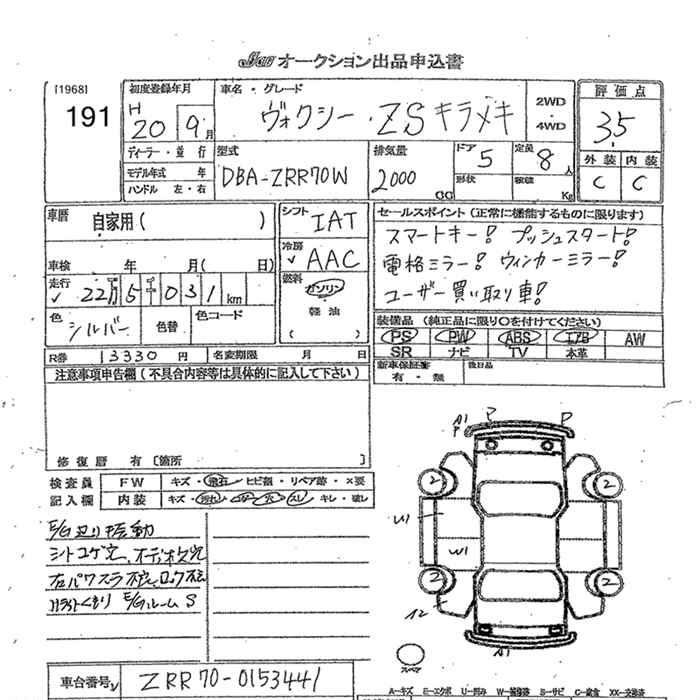 オークション出品申込書
[1968]
191
初度登録年月
H 20 9月
車名・グレード
ヴォクシー・ZSキラメキ
2WD
・
4WD
評価点
3.5
ディーラー・並行
モデル年式 年
ハンドル 左・右
型式
DBA-ZRR70W
排気量
2000
CC
ドア
5
形状
定員
8人
積載
Kg
外装 内装
C C
車歴
自家用( )
シフト
IAT
冷房
AAC
車検 年 月( 日)
走行
22万5千031km
燃料
ガソリン
軽油
( )
色
シルバー
色替
色コード
セールスポイント(正常に機能するものに限ります)
スマートキー! プッシュスタート!
電格ミラー! ウィンカーミラー!
ユーザー買い取り車!
装備品 (純正品に限り○を付けてください)
PS PW ABS エアB AW
SR ナビ TV 本革
R券 13330円
名変期限 月 日
新車保証書
有・無
後日品
注意事項申告欄(不具合内容等は具体的に記入して下さい)
修復歴 有〔箇所 〕
検査員
記入欄
FW キズ・飛石・ヒビ割・リペア跡・×要
内装 キズ・汚れ・コゲ・穴・スレ・キレ・破し
E/G辺り振動
シートコゲ穴、オーディオ欠穴
E/Gルーム S
A1 P P
P
2 2
U1
W1
2 2
12
A1
スペア
車台番号
ZRR70-0153441
A-キズ E-エクボ U-凹み W-補修跡 S-サビ C-腐食 XX-交換済